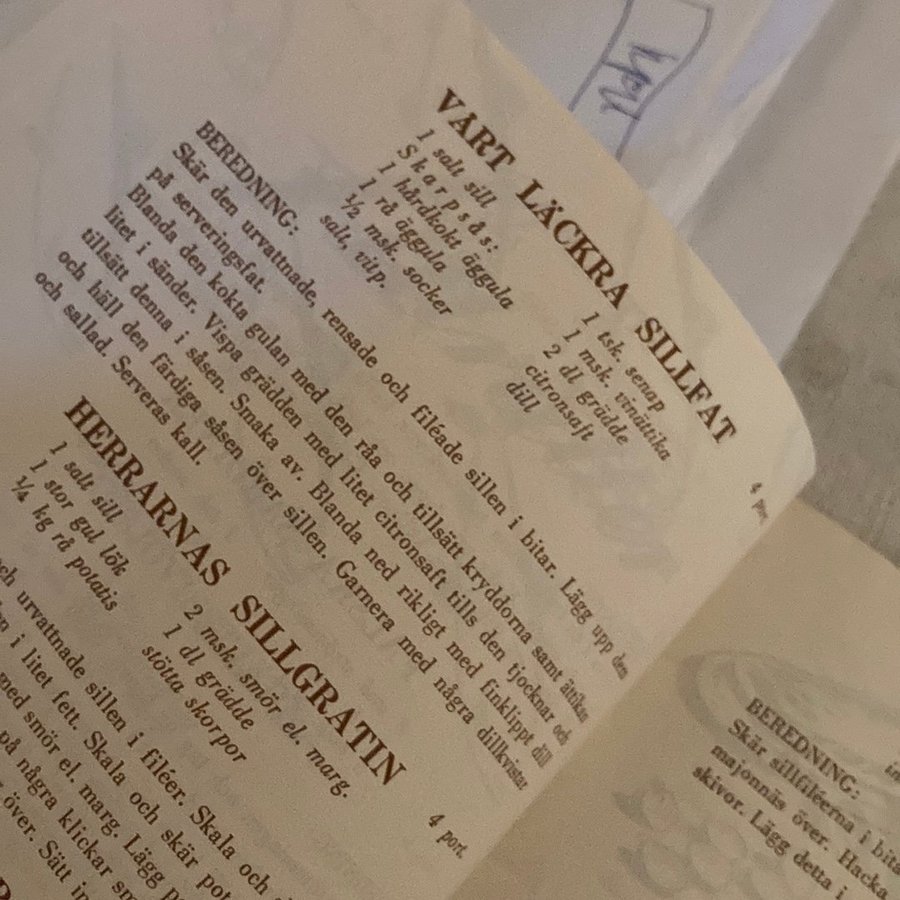 VÅRT LÄCKRA SILLFAT
4 port.
1 salt sill
Skarpsås:
1 hårdkokt äggula
1 rå äggula
½ msk. socker
salt, vitp.
1 tsk. senap
1 msk. vinättika
2 dl grädde
citronsaft
dill
BEREDNING:
Skär den urvattnade, rensade och filéade sillen i bitar. Lägg upp den
på serveringsfat.
Blanda den kokta gulan med den råa och tillsätt kryddorna samt ättikan
litet i sänder. Vispa grädden med litet citronsaft tills den tjocknar och
tillsätt denna i såsen. Smaka av. Blanda ned rikligt med finklippt dill
och häll den färdiga såsen över sillen. Garnera med några dillkvistar
och sallad. Serveras kall.
HERRARNAS SILLGRATIN
4 port.
1 salt sill
1 stor gul lök
¼ kg rå potatis
2 msk. smör el. marg.
1 dl grädde
stötta skorpor
och urvattnade sillen i filéer. Skala och
i litet fett. Skala och skär pot
med smör el. marg. Lägg
på några klickar sm
över. Sätt in
BEREDNING:
Skär sillfiléerna i bita
majonnäs över. Hacka
skivor. Lägg detta i